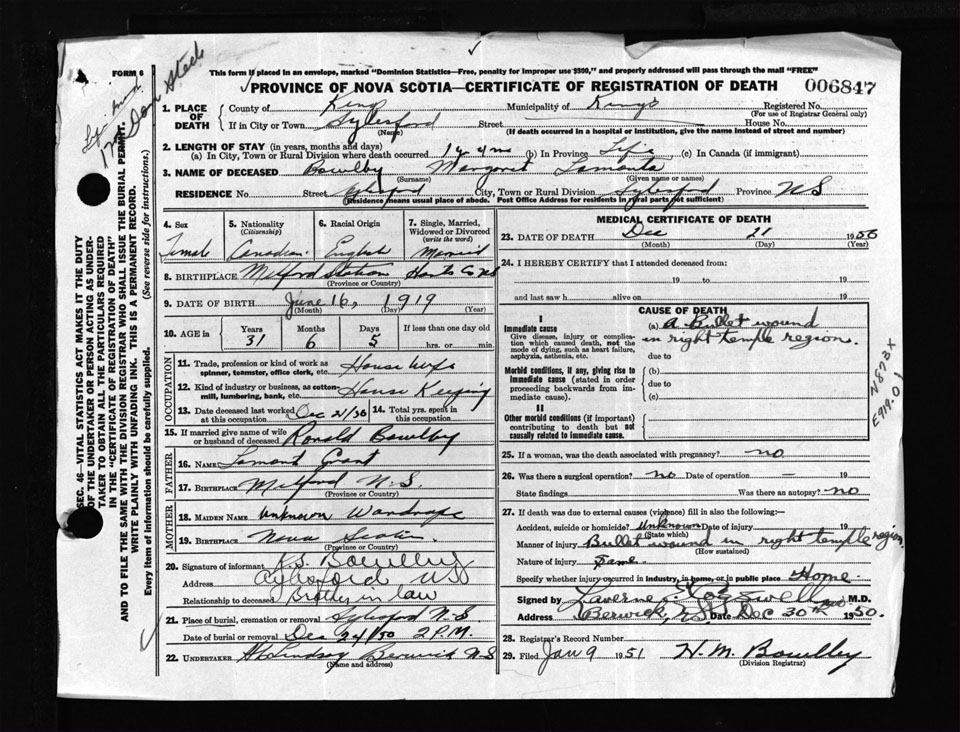 FORM 6
This form is placed in an envelope, marked "Dominion Statistics—Free, penalty for improper use $300," and properly addressed will pass through the mail "FREE"
PROVINCE OF NOVA SCOTIA—CERTIFICATE OF REGISTRATION OF DEATH 006847
1. PLACE OF DEATH
County of Kings Municipality of Kings Registered No.
(For use of Registrar General only)
If in City or Town Aylesford Street House No.
(Name) (If death occurred in a hospital or institution, give the name instead of street and number)
2. LENGTH OF STAY (in years, months and days)
(a) In City, Town or Rural Division where death occurred 1 y 4 ms (b) In Province Life (c) In Canada (if immigrant)
3. NAME OF DECEASED Bowlby Margaret
(Surname) (Given name or names)
RESIDENCE No. Street Aylesford City, Town or Rural Division Aylesford Province N S
(Residence means usual place of abode. Post Office Address for residents in rural parts not sufficient)
4. Sex Female
5. Nationality (Citizenship) Canadian
6. Racial Origin English
7. Single, Married, Widowed or Divorced (write the word) Married
8. BIRTHPLACE Milford Station Hants Co NS
(Province or Country)
9. DATE OF BIRTH June 16, 1919
(Month) (Day) (Year)
10. AGE in Years 31 Months 6 Days 5 If less than one day old hrs. or min.
OCCUPATION
11. Trade, profession or kind of work as spinner, teamster, office clerk, etc. House Wife
12. Kind of industry or business, as cotton-mill, lumbering, bank, etc. House Keeping
13. Date deceased last worked at this occupation Dec 21/50 14. Total yrs. spent in this occupation
15. If married give name of wife or husband of deceased Ronald Bowlby
FATHER
16. NAME Lamont Grant
17. BIRTHPLACE Milford N.S.
(Province or Country)
MOTHER
18. MAIDEN NAME Unknown Wardrope
19. BIRTHPLACE Nova Scotia
(Province or Country)
20. Signature of informant Bowlby
Address Aylesford NS
Relationship to deceased Brother in law
21. Place of burial, cremation or removal Aylesford N.S.
Date of burial or removal Dec 24/50 2 P.M.
22. UNDERTAKER Lindsay Berwick N S
(Name and address)
MEDICAL CERTIFICATE OF DEATH
23. DATE OF DEATH Dec 21 1950
(Month) (Day) (Year)
24. I HEREBY CERTIFY that I attended deceased from:
19 to 19
and last saw h alive on 19
CAUSE OF DEATH
I
Immediate cause
Give disease, injury, or complication which caused death, not the mode of dying, such as heart failure, asphyxia, asthenia, etc.
(a) A Bullet wound
in right temple region.
due to
Morbid conditions, if any, giving rise to immediate cause (stated in order proceeding backwards from immediate cause)
(b)
due to
(c)
II
Other morbid conditions (if important) contributing to death but not causally related to immediate cause.
N873X
E919.0
25. If a woman, was the death associated with pregnancy? no
26. Was there a surgical operation? no Date of operation — 19
State findings Was there an autopsy? no
27. If death was due to external causes (violence) fill in also the following:—
Accident, suicide or homicide? Unknown Date of injury 19
(State which)
Manner of injury Bullet wound in right temple region.
(How sustained)
Nature of injury Same.
Specify whether injury occurred in industry, in home, or in public place Home
Signed by Laverne Cogswell M.D.
Address Berwick, N.S. Date Dec 30th 1950.
28. Registrar's Record Number
29. Filed Jan 9 1951 H. M. Bowlby
(Division Registrar)
SEC. 46—VITAL STATISTICS ACT MAKES IT THE DUTY
OF THE UNDERTAKER OR PERSON ACTING AS UNDER-
TAKER TO OBTAIN ALL THE PARTICULARS REQUIRED
IN THE "CERTIFICATE OF REGISTRATION OF DEATH"
AND TO FILE THE SAME WITH THE DIVISION REGISTRAR WHO SHALL ISSUE THE BURIAL PERMIT.
WRITE PLAINLY WITH UNFADING INK. THIS IS A PERMANENT RECORD.
Every item of information should be carefully supplied. (See reverse side for instructions.)